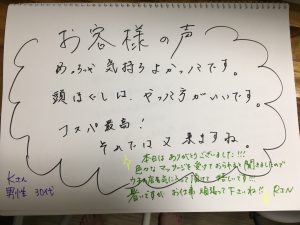 お客様の声
めっちゃ気持ちよかったです。
頭ほぐしは、やった方がいいです。
コスパ最高！
それでは又来ますね。
Kさん
男性 30代
本日はありがとうございました!!!
色々なマッサージを受けておられると聞きましたので
気に入って頂けて嬉しいです!!
暑いですが お仕事 頑張って下さいね!! Rさん